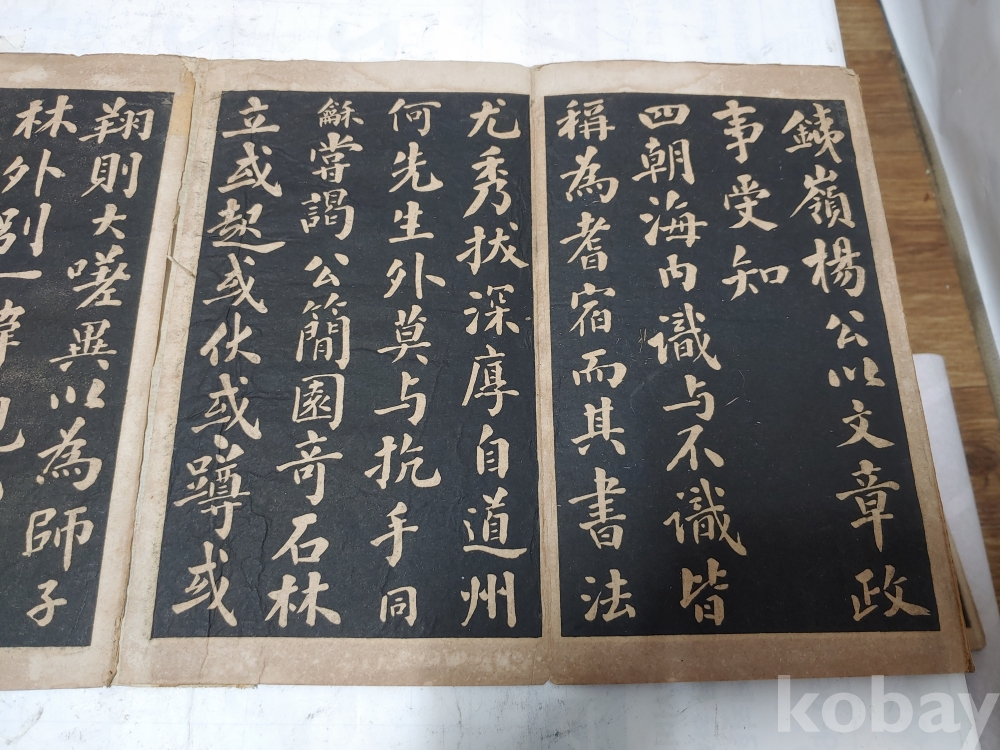 鐵嶺楊公以文章政
事受知
四朝海内識与不識皆
稱為耆宿而其書法
尤秀拔深厚自道州
何先生外莫与抗手同
龢嘗謁公簡園奇石林
立或起或伏或蹲或
翔則大嗟異以為師子
林外別一
kobay